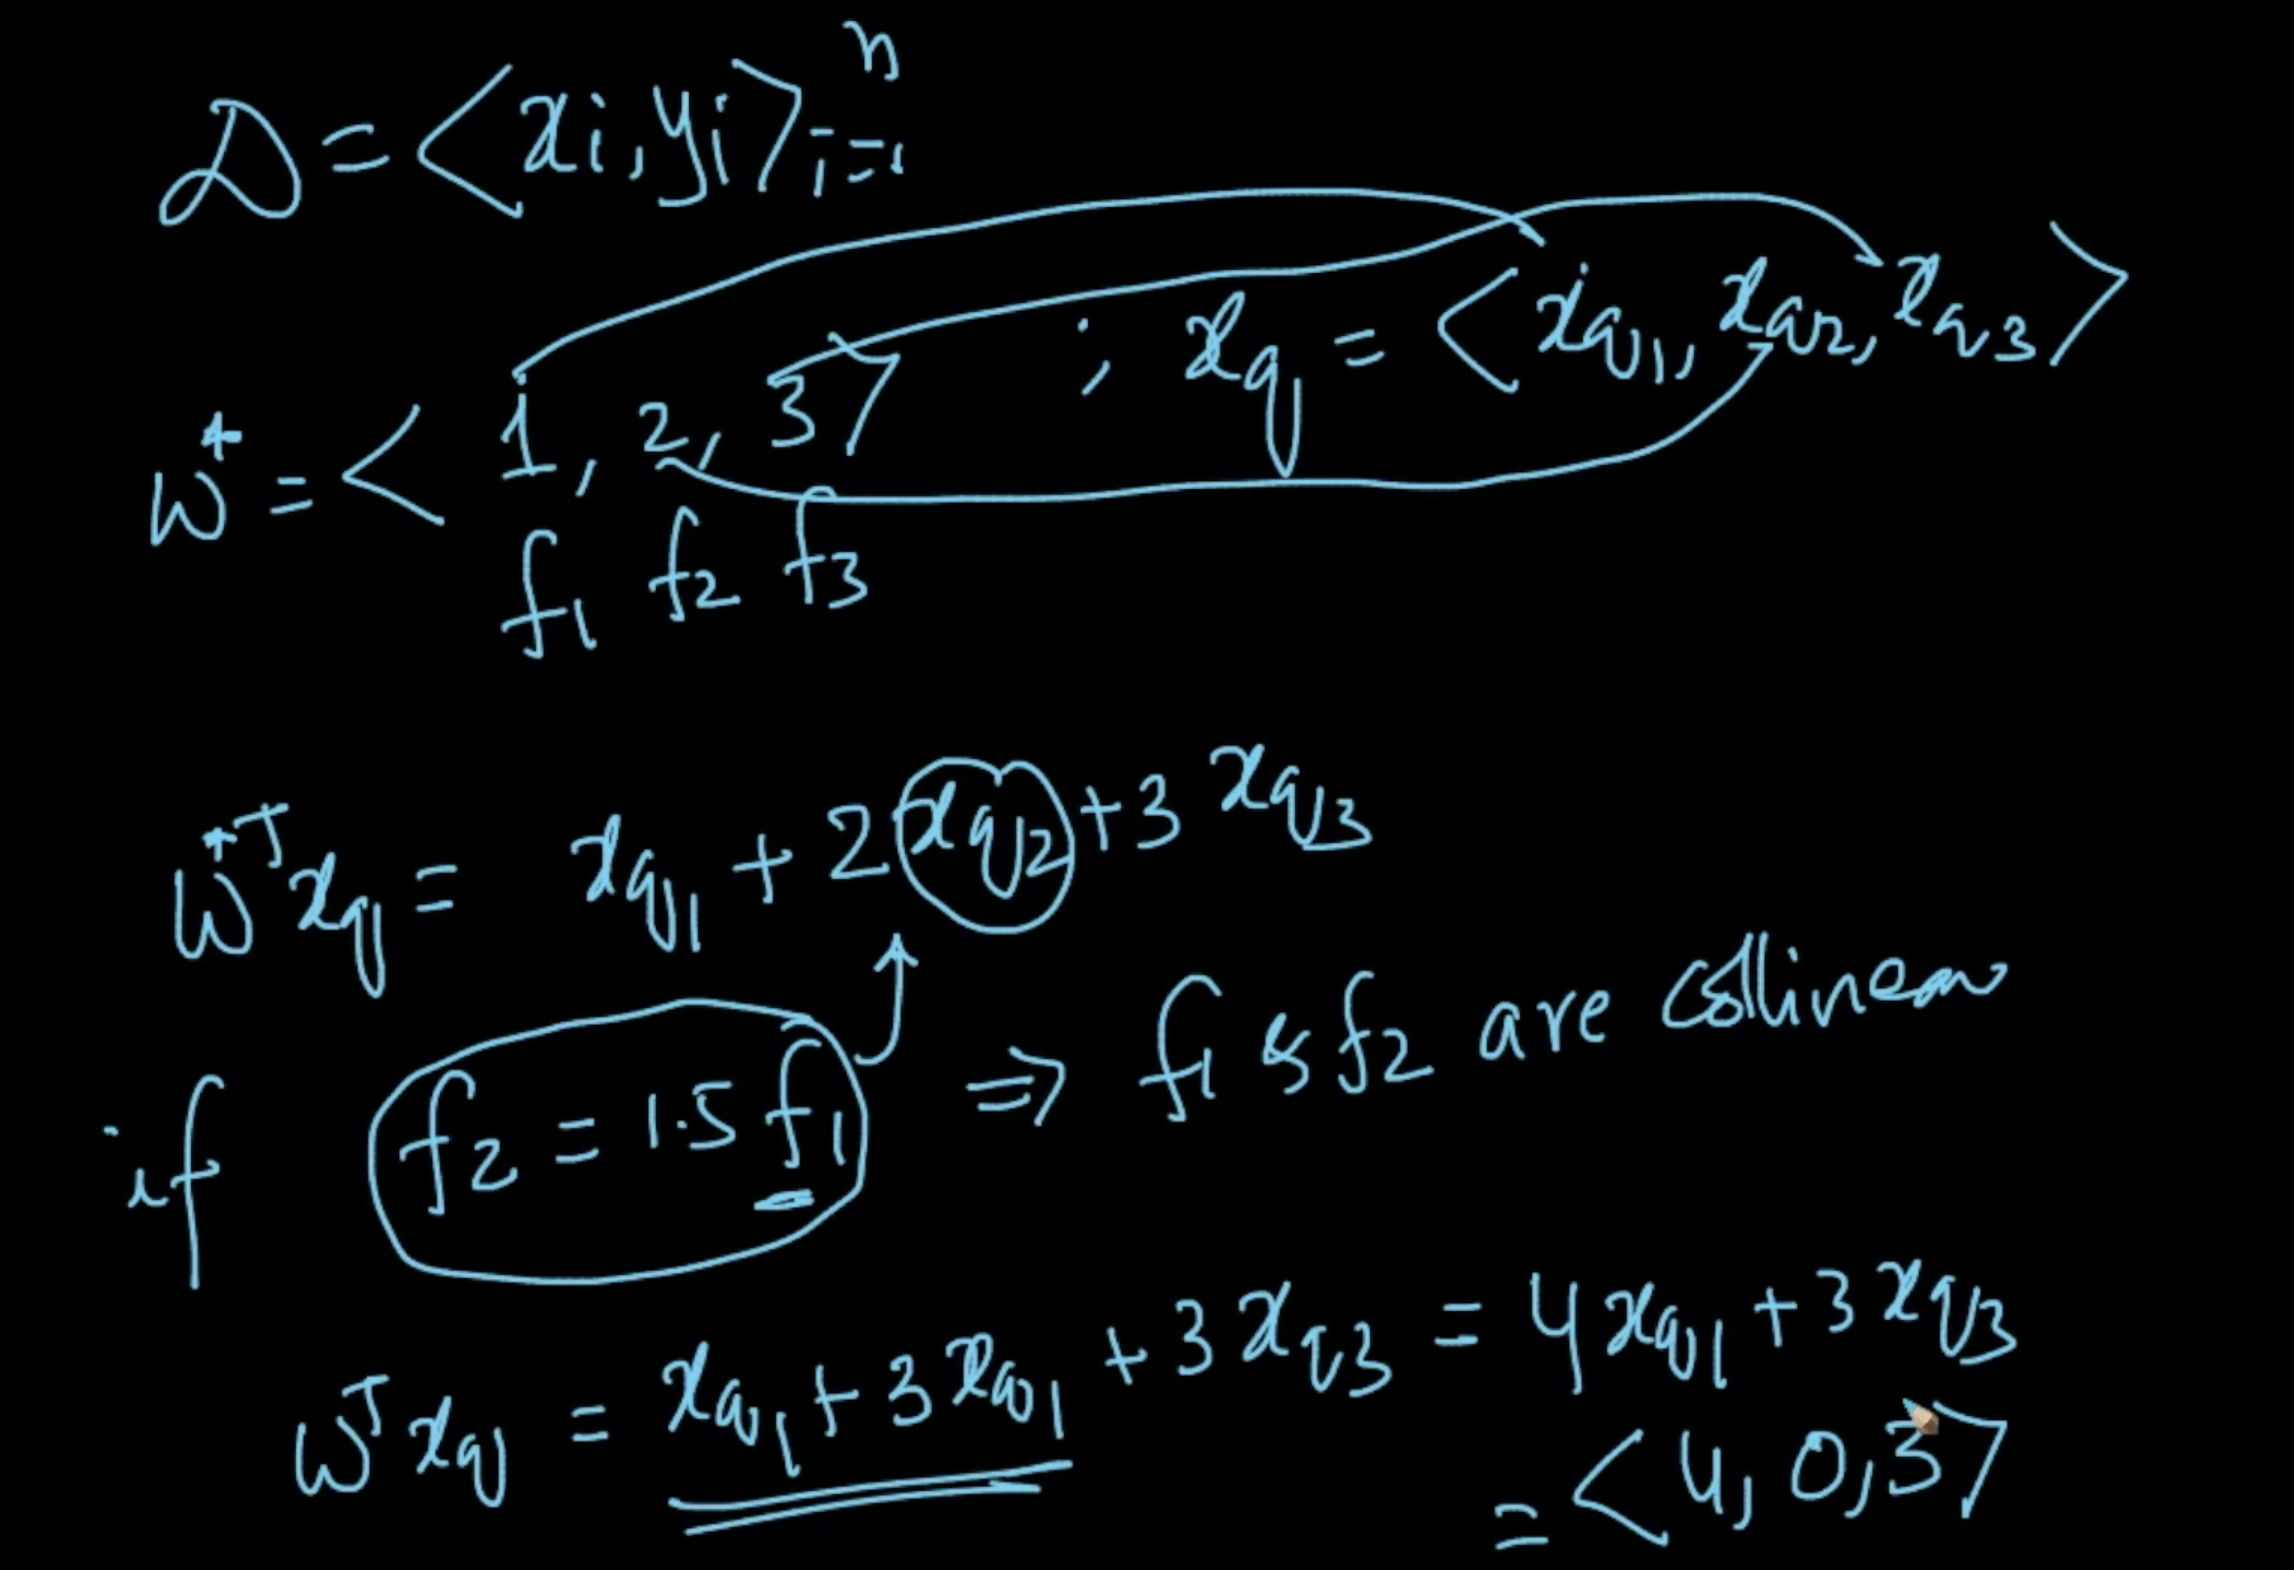 D = <xi, yi>ⁿ i=1
w* = < 1, 2, 3> ; xq = <xq1, xq2, xq3>
f1 f2 f3
w*ᵀxq = xq1 + 2xq2 + 3xq3
if f2 = 1.5 f1 ⇒ f1 & f2 are collinear
wᵀxq = xq1 + 3xq1 + 3xq3 = 4xq1 + 3xq3
= <4, 0, 3>